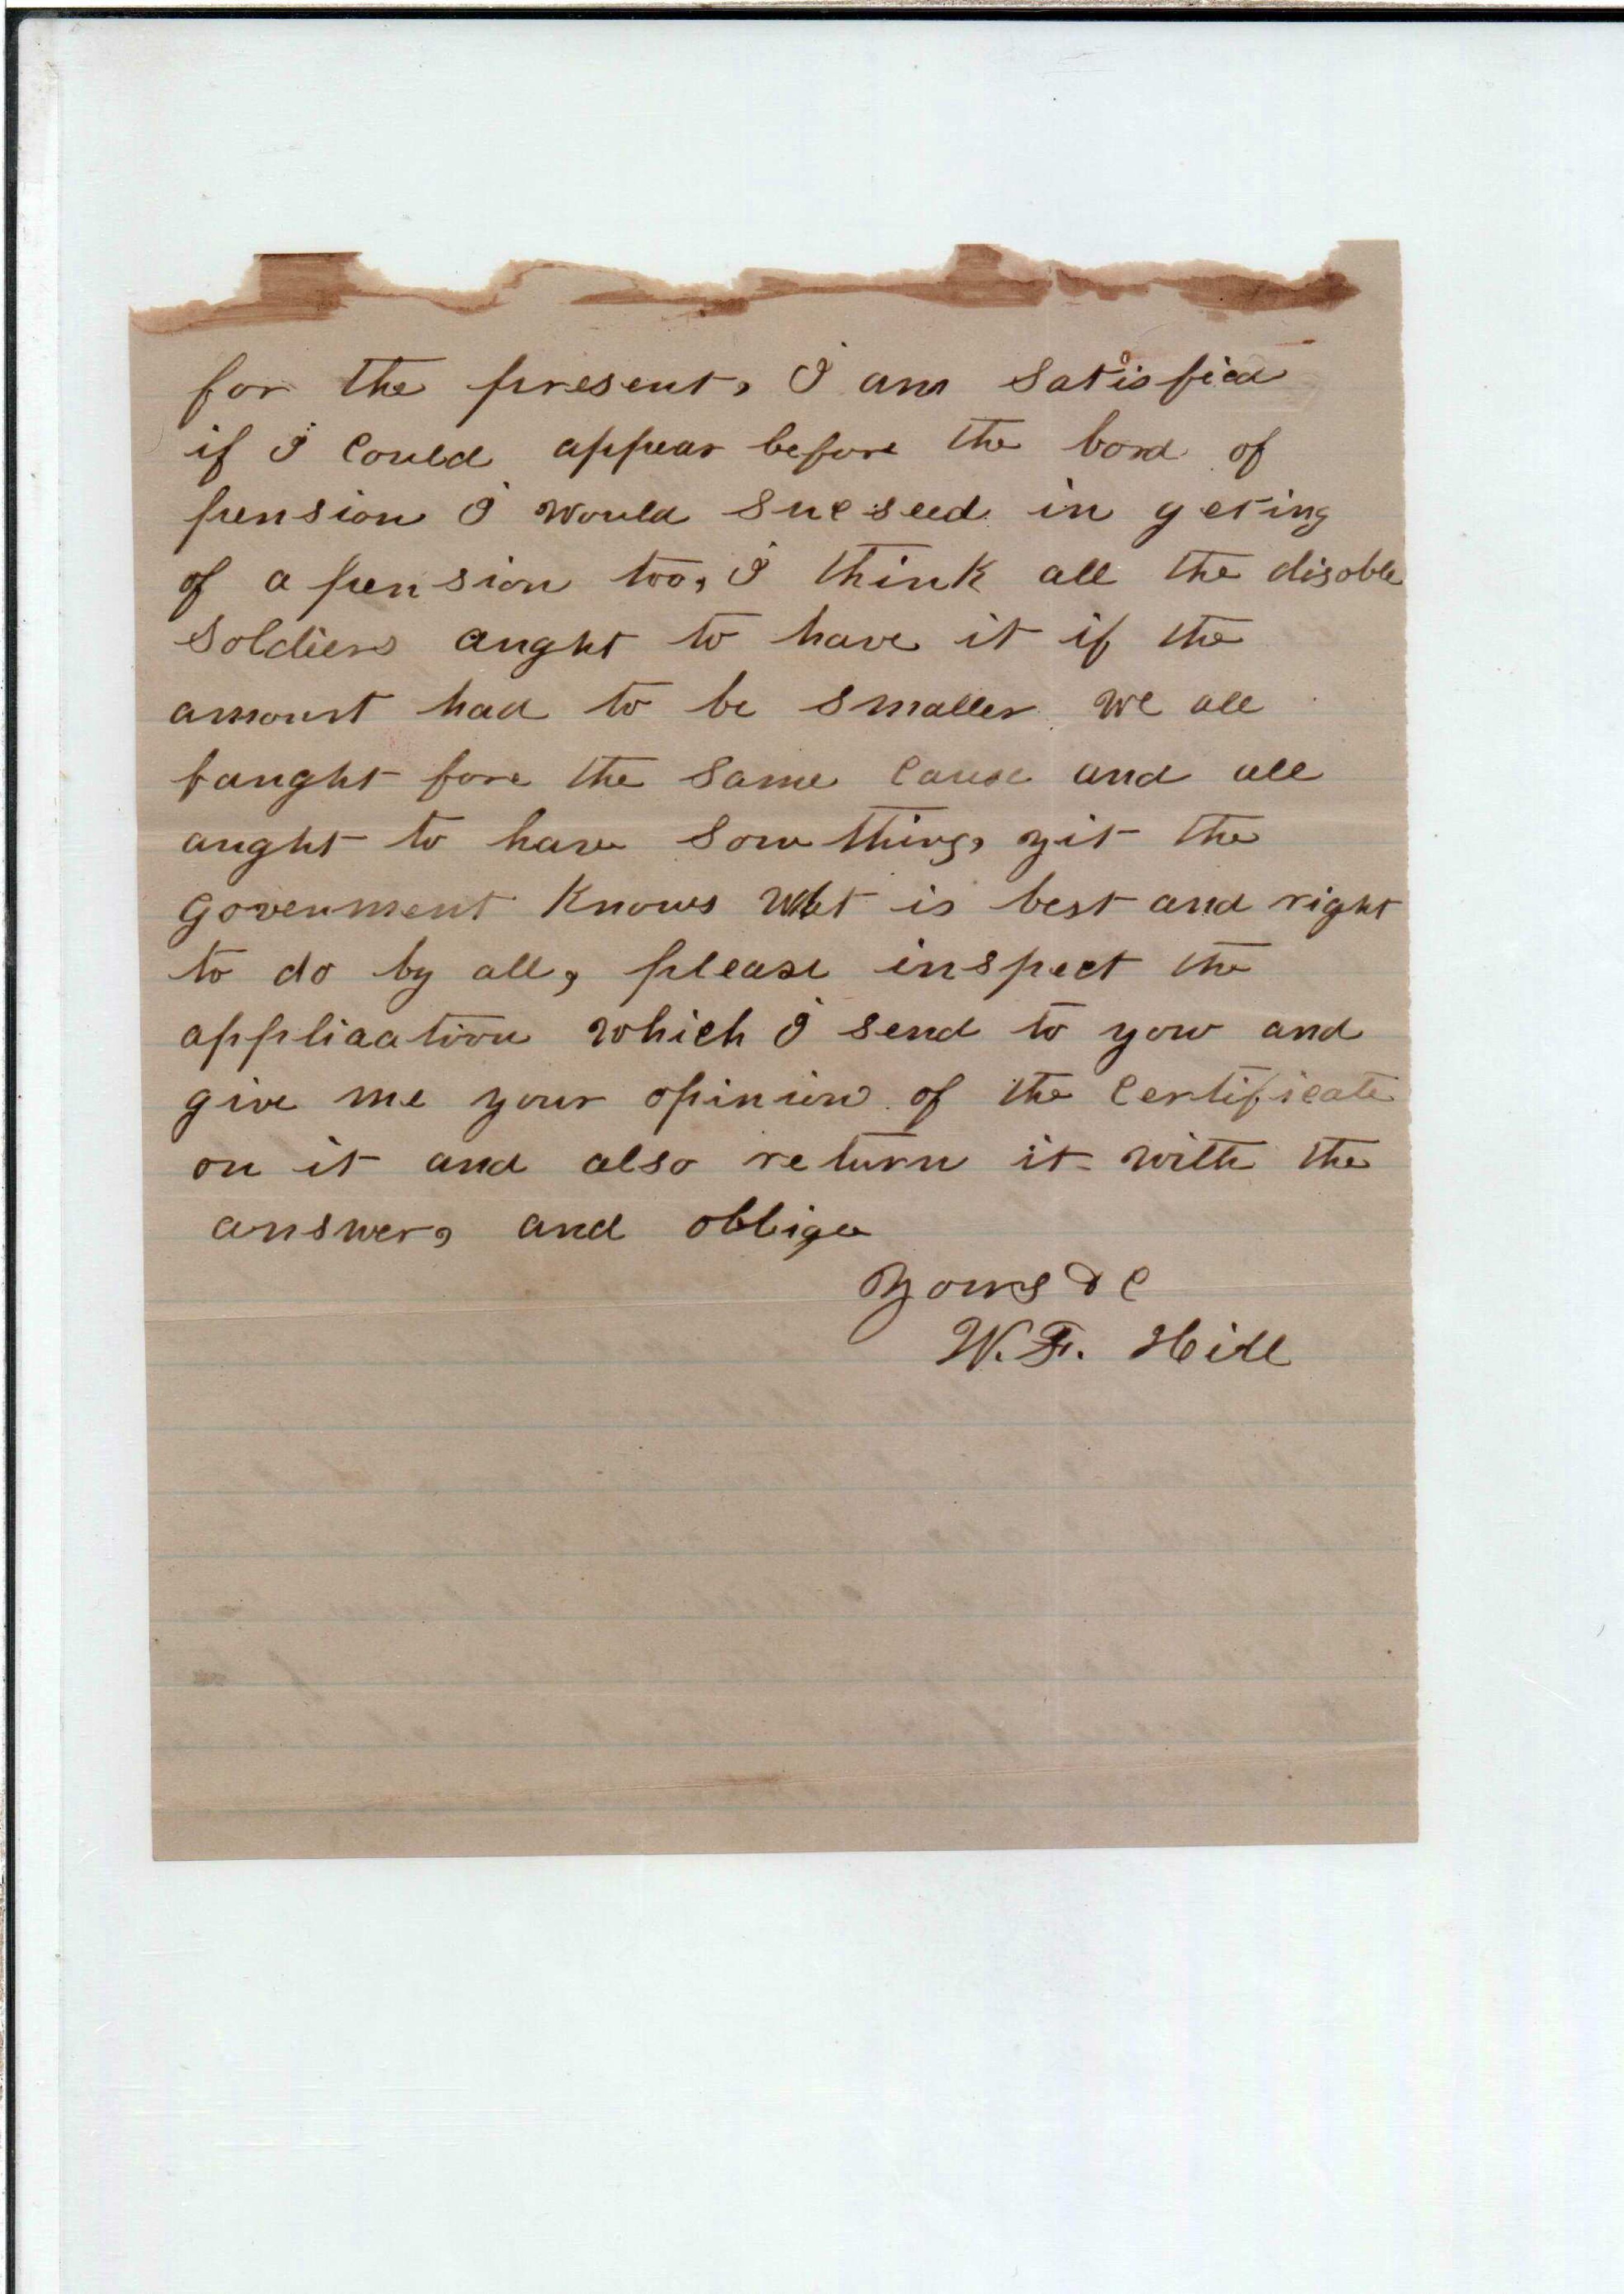 for the present, I am satisfied
if I could appear before the bord of
pension I would sucseed in geting
of a pension too, I think all the disoble
soldiers aught to have it if the
amount had to be smaller we all
faught fore the same cause and all
aught to have some thing, yit the
govenment knows what is best and right
to do by all, please inspect the
appliaation which I send to you and
give me your opinion of the certificate
on it and also return it with the
answer, and oblige
Yours &c
W. F. Hill